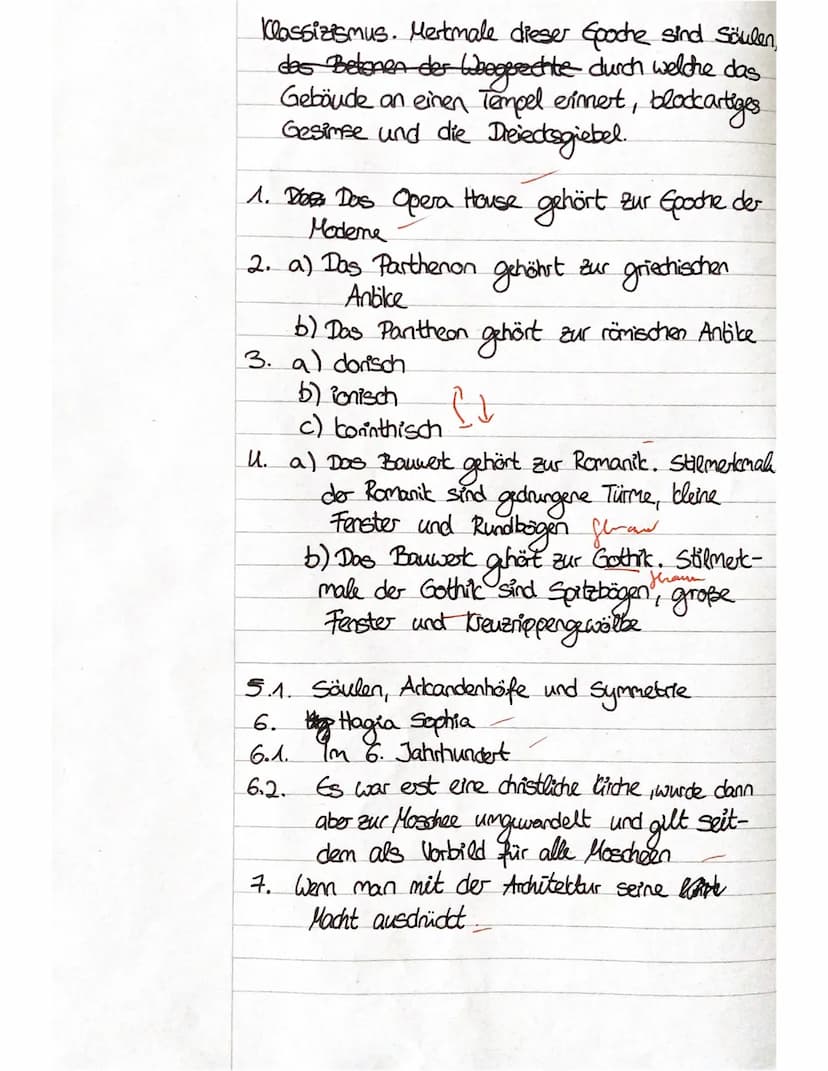 Klassizismus. Merkmale dieser Epoche sind Säulen,
das Betonen der Waagrechte durch welche das
Gebäude an einen Tempel erinnert, blockartiges
Gesimse und die Dreiecksgiebel.
1. Das Opera House gehört zur Epoche der
Moderne
2. a) Das Parthenon gehöhrt zur griechischen
Antike
b) Das Pantheon gehört zur römischen Antike
3. a) dorisch
b) ionisch
c) korinthisch
4. a) Das Bauwerk gehört zur Romanik. Stilmerkmale
der Romanik sind gedrungene Türme, kleine
Fenster und Rundbögen
b) Das Bauwerk ghört zur Gothik. Stilmerk-
male der Gothik sind Spitzbögen, große
Fenster und Kreuzrippengewölbe
5.1. Säulen, Arkandenhöfe und Symmetrie
6. Hagia Sophia
6.1. Im 6. Jahrhundert
6.2. Es war erst eine christliche Kirche, wurde dann
aber zur Moschee umgewandelt und gilt seit-
dem als Vorbild für alle Moscheen
7. Wenn man mit der Architektur seine
Macht ausdrückt.